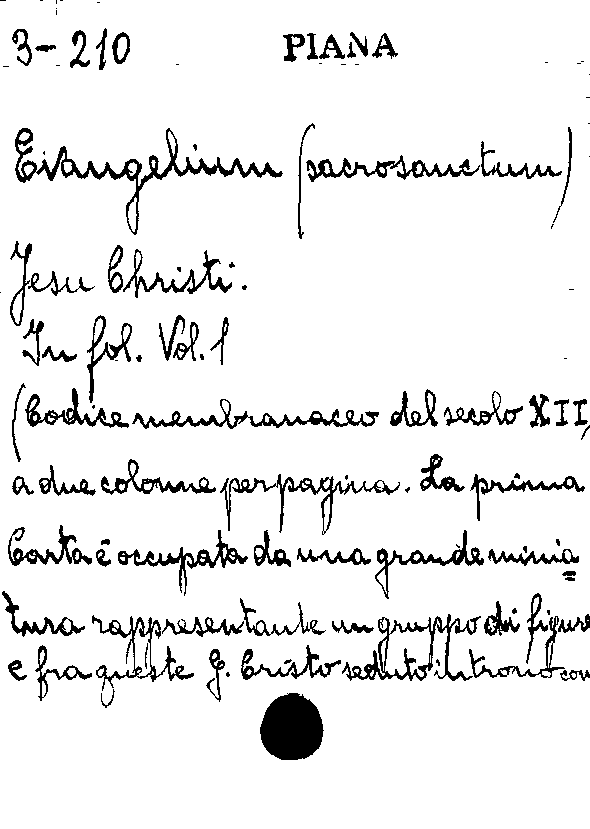 3-210 PIANA
Evangelium (sacrosanctum)
Jesu Christi.
In fol. Vol. 1
(Codice membranaceo del secolo XII,
a due colonne per pagina. La prima
Carta è occupata da una grande minia=
tura rappresentante un gruppo di figure
e fra queste G. Cristo seduto in trono con